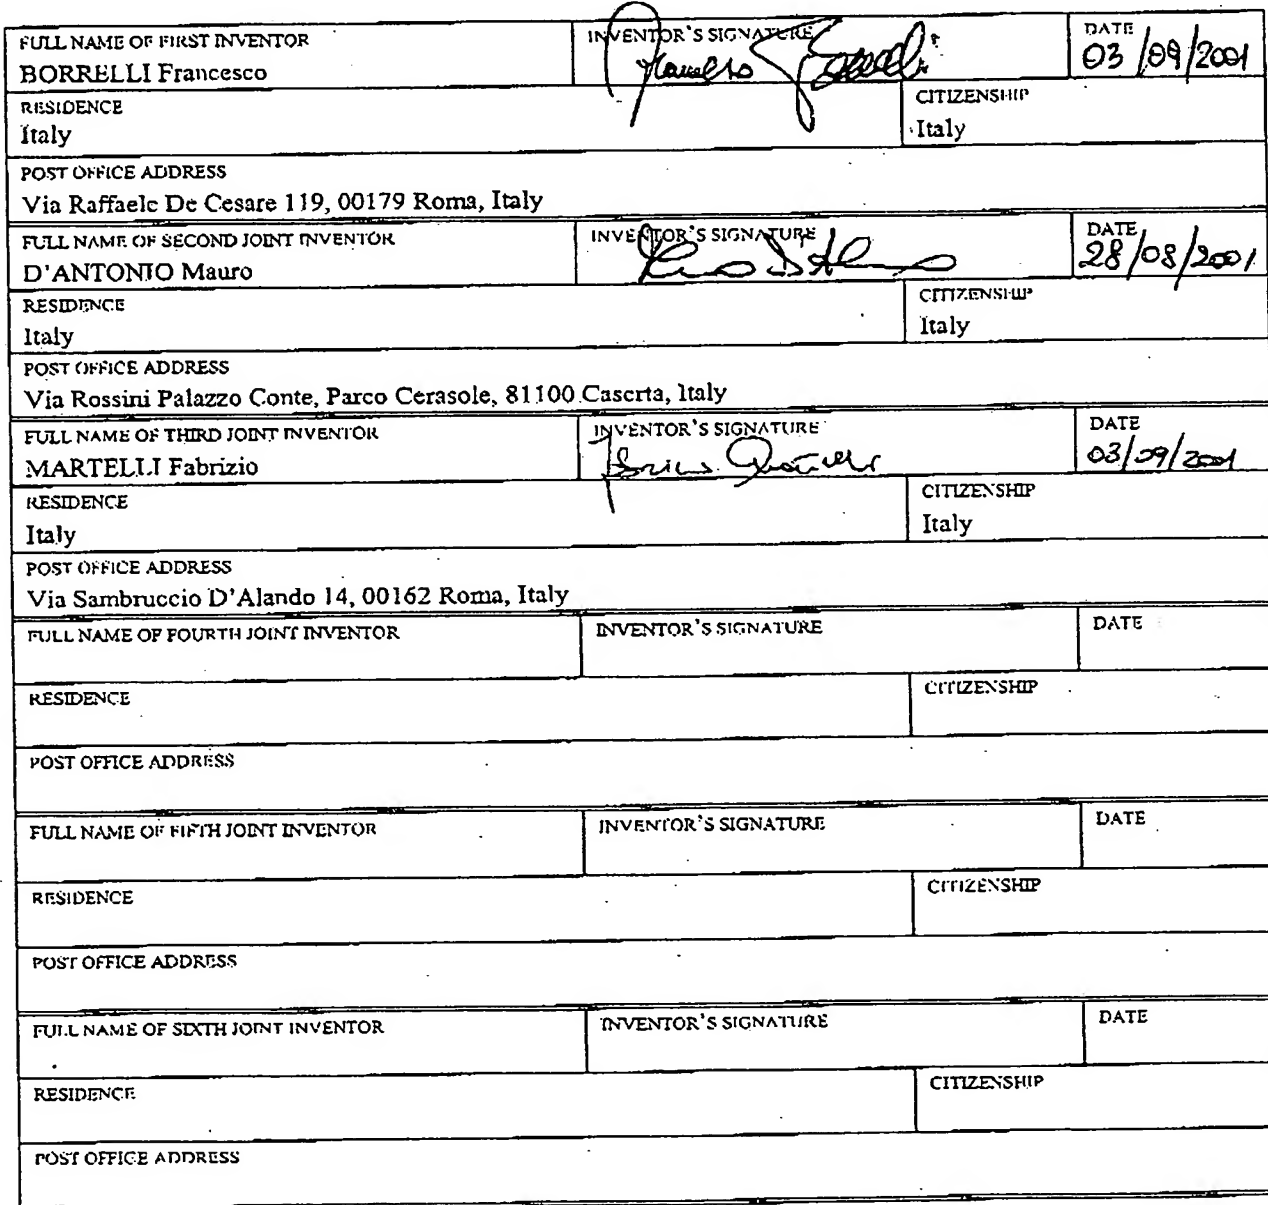 FULL NAME OF FIRST INVENTOR INVENTOR'S SIGNATURE DATE
BORRELLI Francesco 03/09/2001
RESIDENCE CITIZENSHIP
Italy Italy
POST OFFICE ADDRESS
Via Raffaele De Cesare 119, 00179 Roma, Italy
FULL NAME OF SECOND JOINT INVENTOR INVENTOR'S SIGNATURE DATE
D'ANTONIO Mauro 28/08/2001
RESIDENCE CITIZENSHIP
Italy Italy
POST OFFICE ADDRESS
Via Rossini Palazzo Conte, Parco Cerasole, 81100 Caserta, Italy
FULL NAME OF THIRD JOINT INVENTOR INVENTOR'S SIGNATURE DATE
MARTELLI Fabrizio 03/09/2001
RESIDENCE CITIZENSHIP
Italy Italy
POST OFFICE ADDRESS
Via Sambruccio D'Alando 14, 00162 Roma, Italy
FULL NAME OF FOURTH JOINT INVENTOR INVENTOR'S SIGNATURE DATE
RESIDENCE CITIZENSHIP
POST OFFICE ADDRESS
FULL NAME OF FIFTH JOINT INVENTOR INVENTOR'S SIGNATURE DATE
RESIDENCE CITIZENSHIP
POST OFFICE ADDRESS
FULL NAME OF SIXTH JOINT INVENTOR INVENTOR'S SIGNATURE DATE
RESIDENCE CITIZENSHIP
POST OFFICE ADDRESS